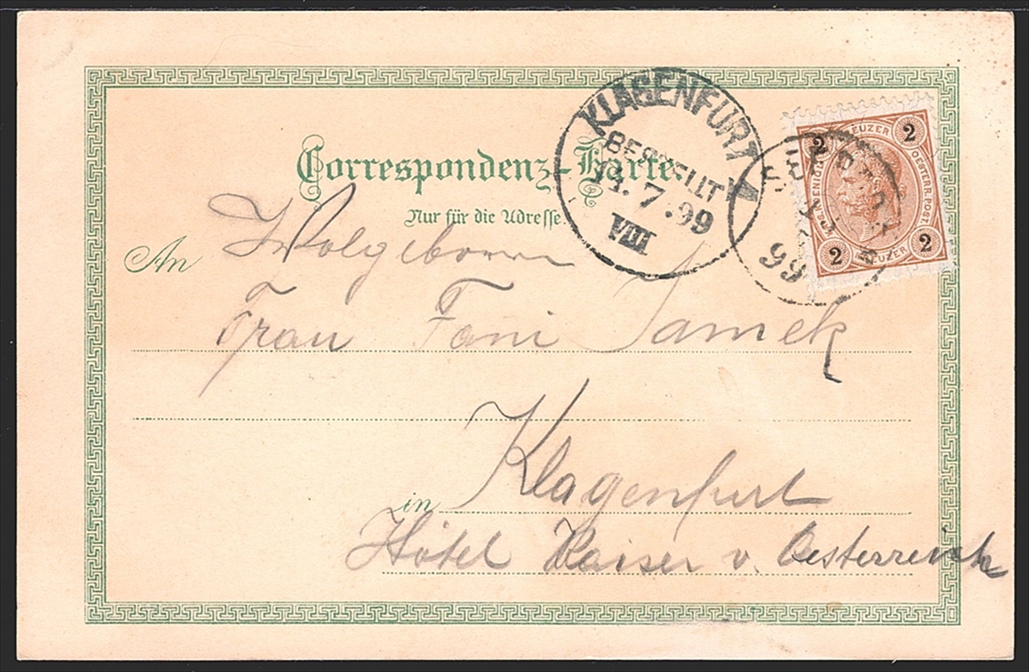 Correspondenz-Karte.
Nur für die Adresse.
KLAGENFURT
BESTELLT
7.99
VIII
2 2
KREUZER
OESTERR. POST.
2 2
KREUZER
99
An Wolgeborne
Frau Fani Samek
in Klagenfurt
Hôtel Kaiser v. Oesterreich